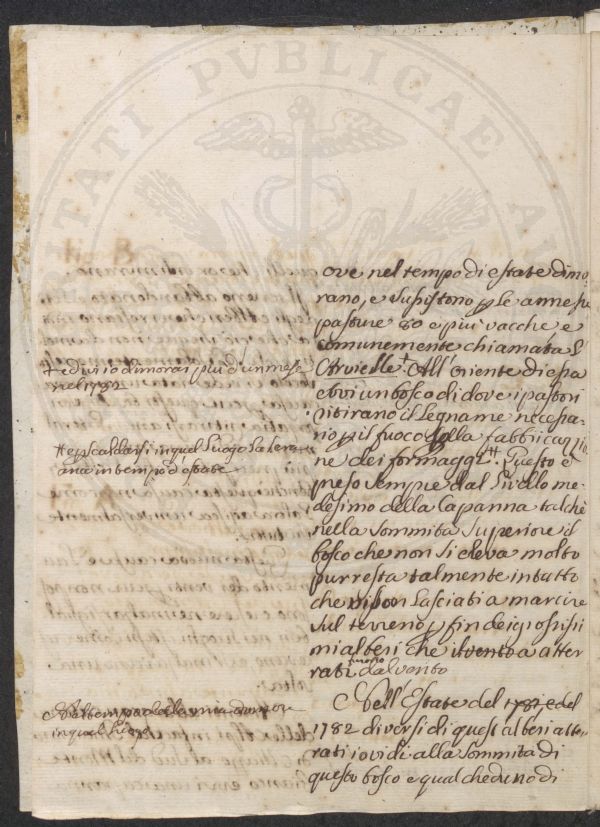 ove nel tempo di estate dimo
rano, e sussistono p le annesse
pasture 80 e più vacche e
comunemente chiamata L'
Arvielle + All'oriente di essa
evvi un bosco di dove i pastori
ritirano il legname necessa
rio p il fuoco della fabbricazio
ne dei formaggi #. Questo è
preso sempre dal livello me
desimo della Capanna talchè
nella sommità superiore il
bosco che non si eleva molto
pur resta talmente intatto
che vi son lasciati a marcire
sul terreno p fin dei grossissi
mi alberi che il vento a atter
rati dal vento
Nell'Estate del 1781 e del
1782 diversi di quest alberi atter
rati io vidi alla sommità di
questo bosco e qualcheduno di
+ ed ivi io dimorai più d'un mese
nel 1782
# e p scaldarsi in quel luogo la sera
anca in tempo d'estate
in quel luogo